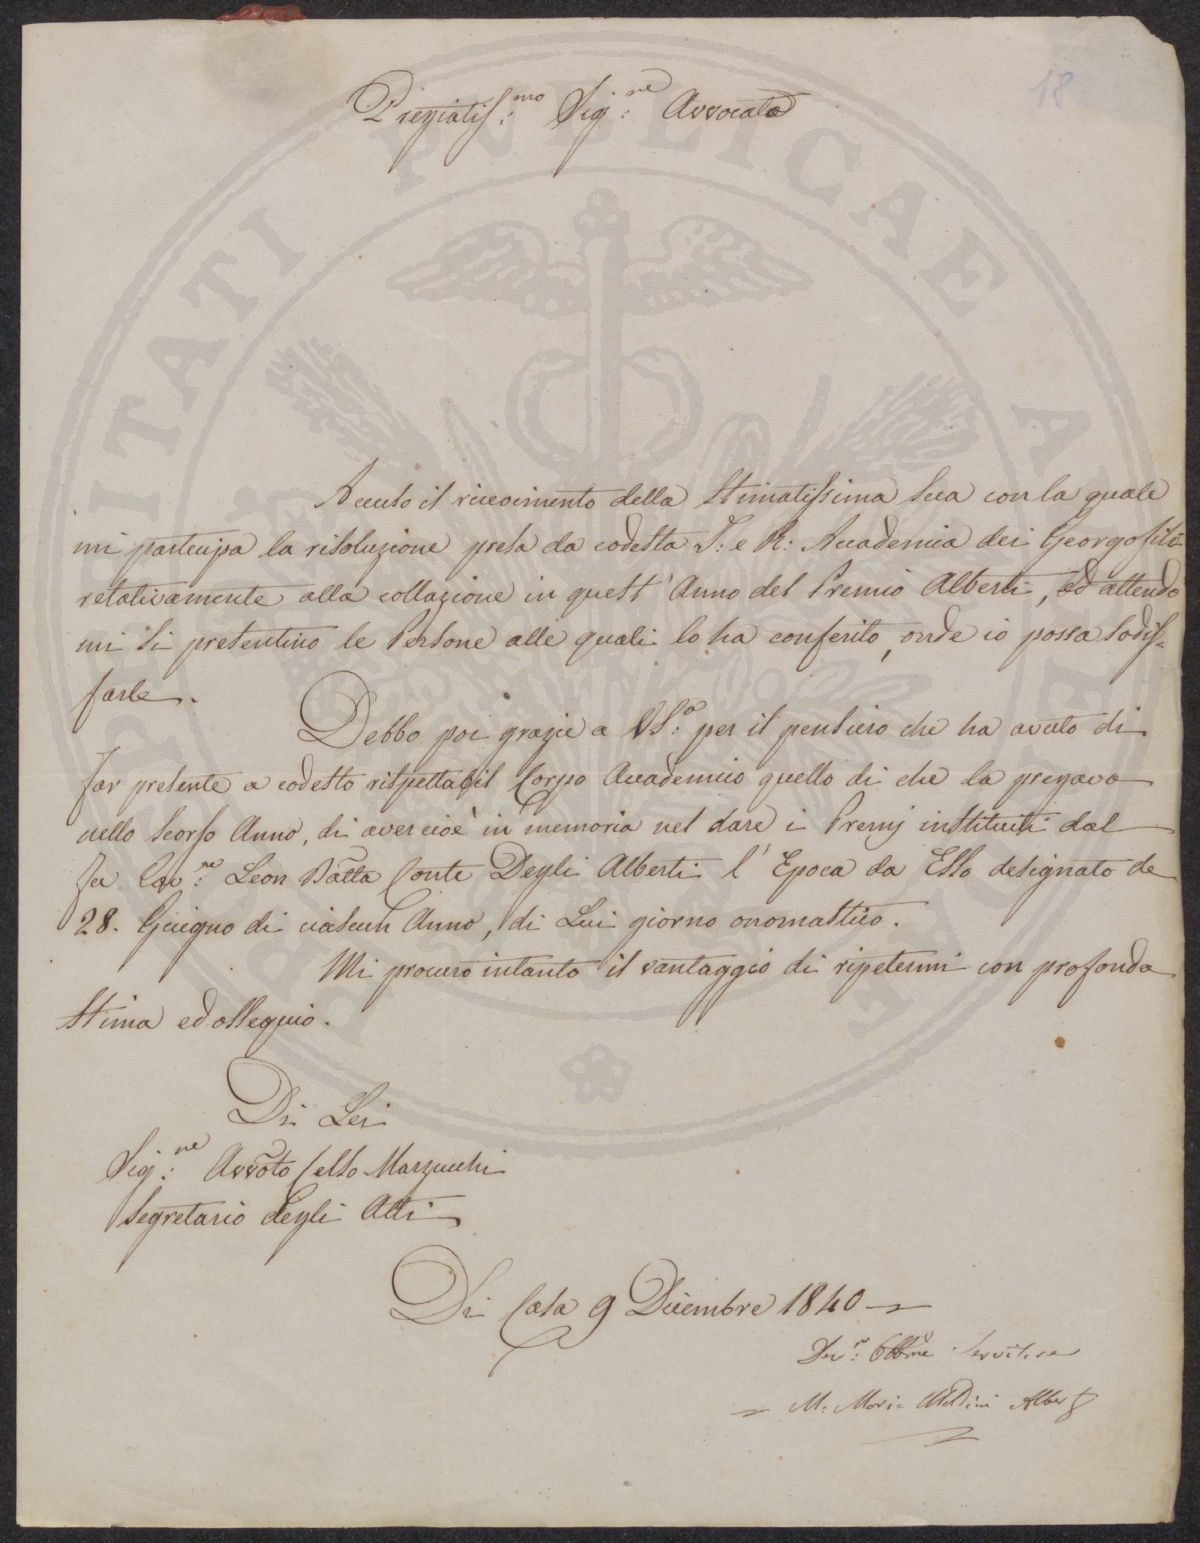 18
Pregiatis:mo Sig:re Avvocato
Accuso il ricevimento della Stimatissima Sua con la quale
mi partecipa la risoluzione presa da codesta I: e R: Accademia dei Georgofili
relativamente alla collazione in quest'Anno del Premio Alberti, ed attendo
mi si presentino le Persone alle quali lo ha conferito, onde io possa sodis=
farle.
Debbo poi grazie a VS:a per il pensiero che ha avuto di
far presente a codesto rispettabil Corpo Accademico quello di che la pregava
nello scorso Anno, di aver cioè in memoria nel dare i Premj instituiti dal
fu Cav:re Leon Batta Conte Degli Alberti l'Epoca da Esso designato de
28. Giugno di ciascun Anno, di Lui giorno onomastico.
Mi procuro intanto il vantaggio di ripetermi con profonda
stima ed ossequio.
Di Lei
Sig:re Avvoto Celso Marzucchi
Segretario degli Atti
Di Casa 9 Dicembre 1840
Obbme Servitore
M: Mori Alberti
PROSPERITATI PUBLICAE AUGENDAE